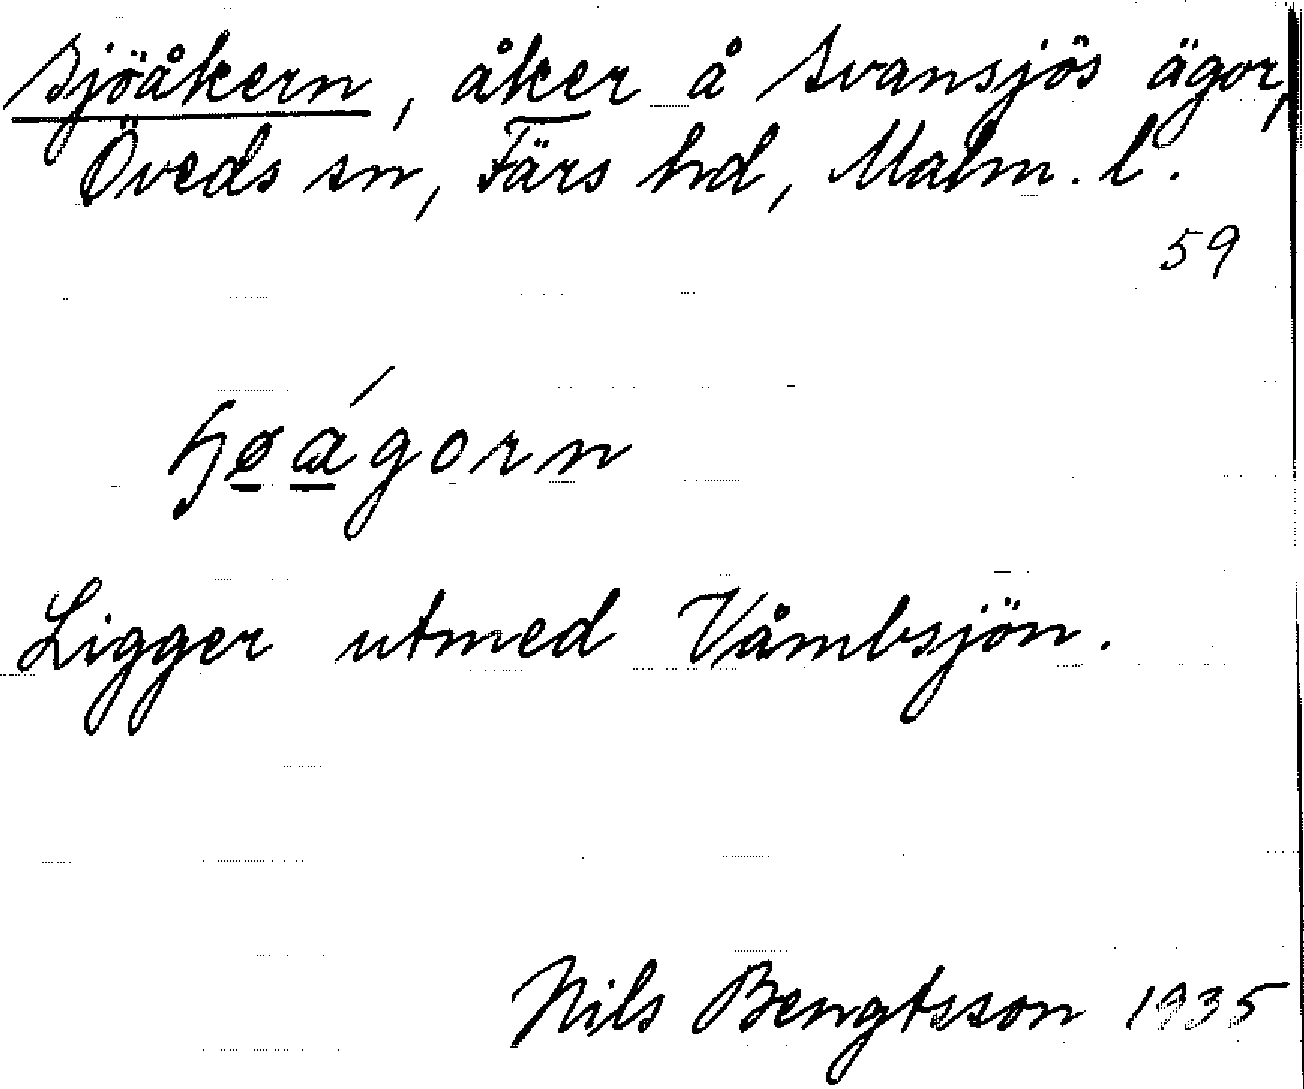 Sjöåkern, åker å Svansjös ägor,
Öveds sn, Färs hd, Malm. l.
59
ɧøágorn
Ligger utmed Våmbsjön.
Nils Bengtsson 1935